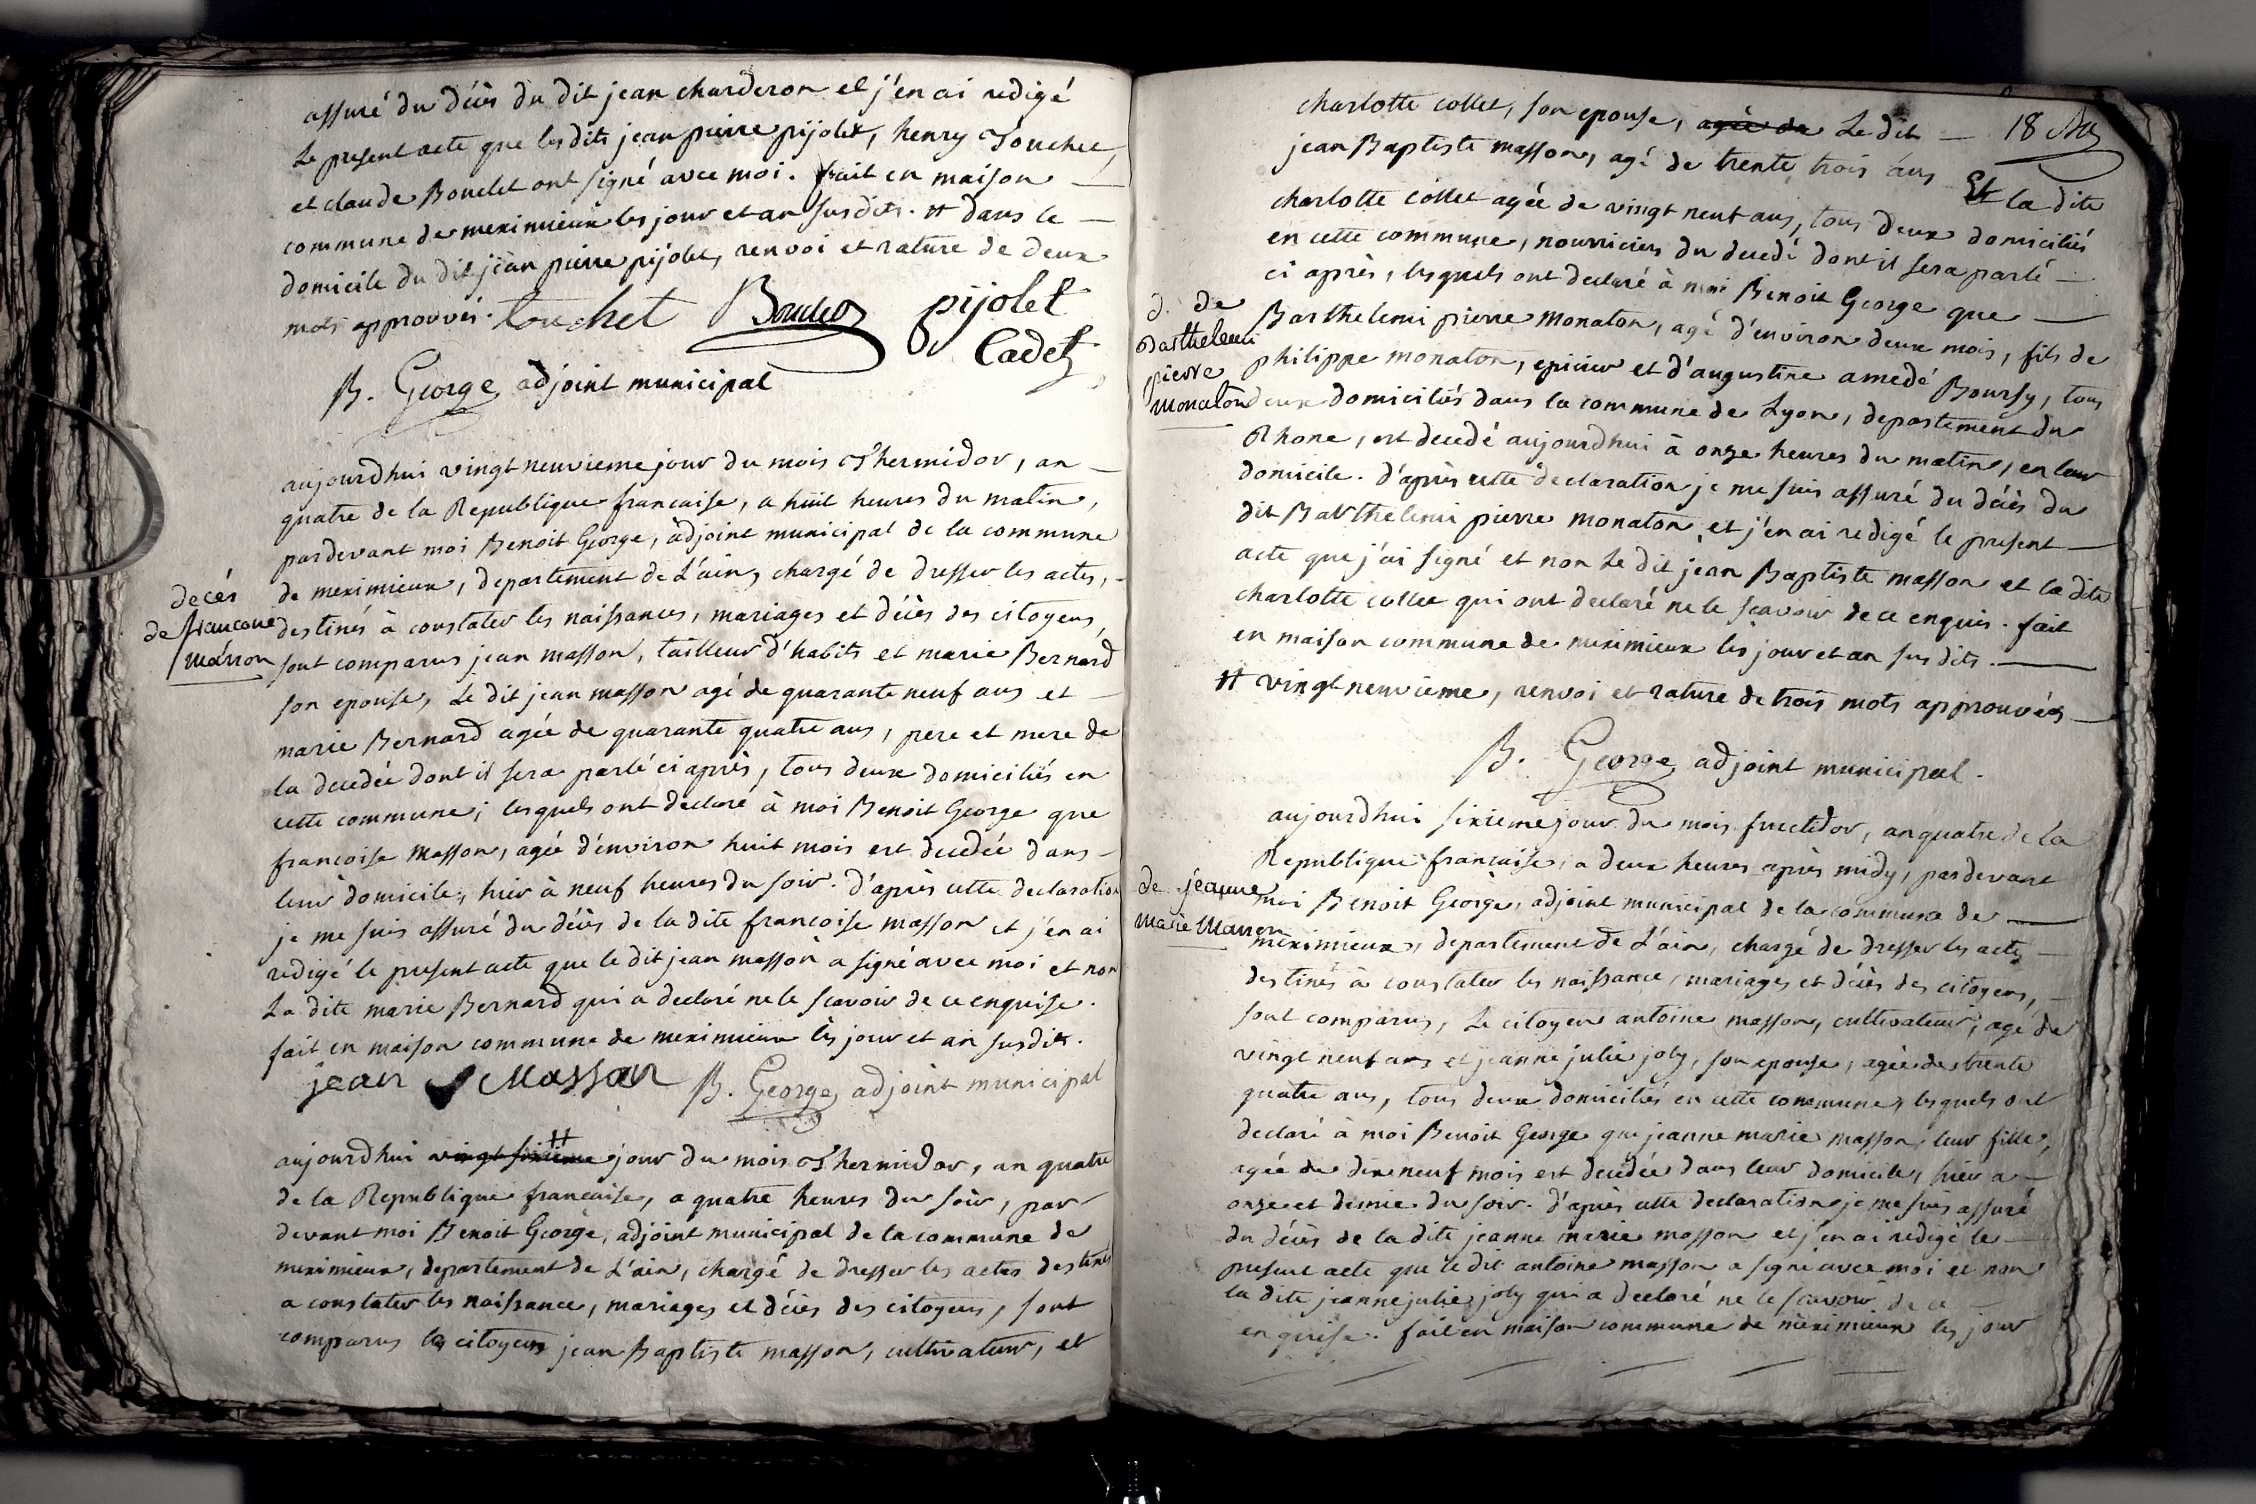 assuré du décès du dit jean charderon et j'en ai redigé
Le present acte que les dits jean pierre pijolet, henry Touchet,
et claude Boulet ont signé avec moi. fait en maison
commune de meximieux les jour et an susdits. # dans le
domicile du dit jean pierre pijolet, renvoi et rature de deux
mots approuvés. touchet pijolet
Cadet
B. George, adjoint municipal
aujourdhui vingt neuvieme jour du mois Thermidor, an
quatre de la Republique francaise, a huit heures du matin,
pardevant moi Benoit George, adjoint municipal de la commune
de meximieux, departement de L'ain, chargé de dresser les actes,
destinés à constater les naissances, mariages et décès des citoyens,
sont comparus jean masson, tailleur d'habits et marie Bernard
son epouse, Le dit jean masson agé de quarante neuf ans et
marie Bernard agée de quarante quatre ans, pere et mere de
la decedée dont il sera parlé ci après, tous deux domiciliés en
cette commune, lesquels ont declaré à moi Benoit George que
francoise masson, agée d'environ huit mois est decedée dans
leur domicile, hier à neuf heures du soir. d'après cette declaration
je me suis assuré du décès de la dite francoise masson et j'en ai
redigé le present acte que le dit jean masson a signé avec moi et non
La dite marie Bernard qui a declaré ne le scavoir de ce enquise.
fait en maison commune de meximieux les jour et an susdits.
jean Masson B. George, adjoint municipal
decés
de francoise
Masson
aujourdhui vingt sixieme # jour du mois Thermidor, an quatre
de la Republique francaise, a quatre heures du soir, par
devant moi Benoit George, adjoint municipal de la commune de
meximieux, departement de L'ain, chargé de dresser les actes destinés
a constater les naissance, mariages et décès des citoyens, sont
comparus les citoyens jean Baptiste masson, cultivateur, et
18
charlotte collet, son epouse, agée de Le dit
jean Baptiste masson, agé de trente trois ans Et la dite
charlotte collet agée de vingt neuf ans, tous deux domiciliés
en cette commune, nourriciers du decedé dont il sera parlé
ci après, lesquels ont declaré à moi Benoit George que
Barthelemi pierre monaton, agé d'environ deux mois, fils de
philippe monaton, epicier et d'augustine amedé Boursy, tous
deux domiciliés dans la commune de Lyon, departement du
Rhone, est decedé aujourdhui à onze heures du matin, en leur
domicile. d'après cette declaration je me suis assuré du décès du
dit Barthelemi pierre monaton, et j'en ai redigé le present
acte que j'ai signé et non Le dit jean Baptiste masson et la dite
charlotte collet qui ont declaré ne le scavoir de ce enquis. fait
en maison commune de meximieux les jour et an sus dits.
# vingt neuvieme, renvoi et rature de trois mots approuvés
B. George, adjoint municipal.
d. de
Barthelemi
pierre
Monaton
aujourdhui sixieme jour du mois fructidor, an quatre de la
Republique francaise, a deux heures après midy, pardevant
moi Benoit George, adjoint municipal de la commune de
meximieux, departement de L'ain, chargé de dresser les actes
destinés à constater les naissance, mariages et décès des citoyens,
sont comparus, Le citoyen antoine masson, cultivateur, agé de
vingt neuf ans et jeanne julie joly, son epouse, agée de trente
quatre ans, tous deux domiciliés en cette commune, lesquels ont
declaré à moi Benoit George que jeanne marie masson, leur fille,
agée de dix neuf mois est decedée dans leur domicile, hier a
onze et demie du soir. d'après cette declaration je me suis assuré
du décès de la dite jeanne marie masson et j'en ai redigé le
present acte que le dit antoine masson a signé avec moi et non
la dite jeanne julie joly qui a declaré ne le scavoir de ce
enquise. fait en maison commune de meximieux les jour
de jeanne
Marie Masson